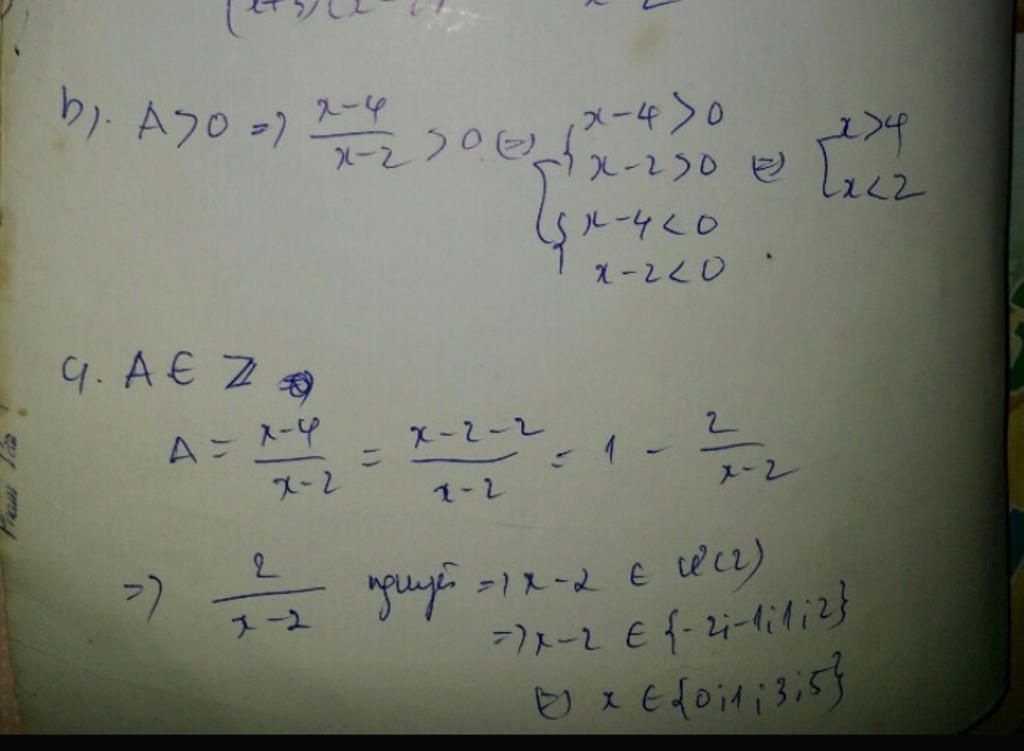 (x+3)(x-2) x-2
b). A>0 => \frac{x-4}{x-2} > 0 <=> [ { x-4>0 ; x-2>0 ; { x-4<0 ; x-2<0 <=> [ x>4 ; x<2
c). A ∈ Z
A = \frac{x-4}{x-2} = \frac{x-2-2}{x-2} = 1 - \frac{2}{x-2}
=> \frac{2}{x-2} nguyên => x-2 ∈ Ư(2)
=> x-2 ∈ {-2;-1;1;2}
<=> x ∈ {0;1;3;5}